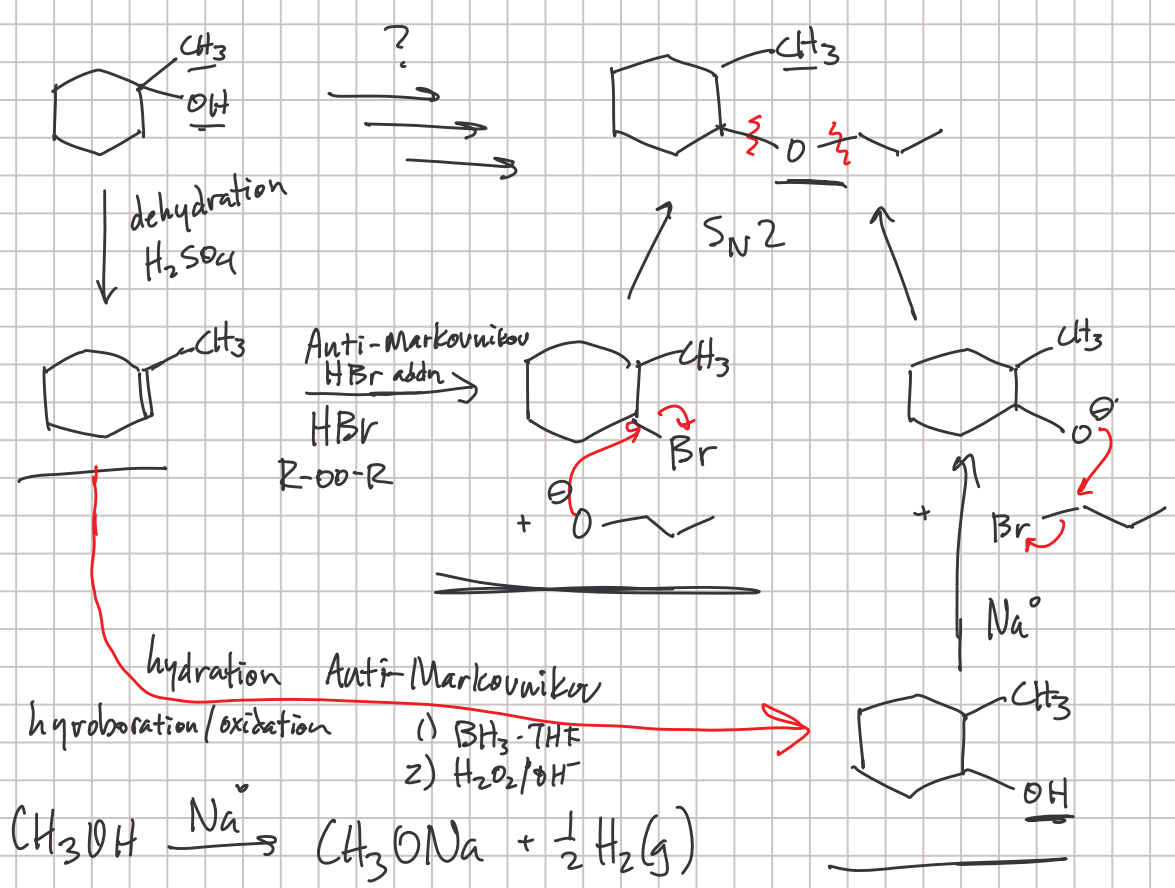 CH3
OH
?
CH3
O
dehydration
H2SO4
SN2
CH3
Anti-Markovnikov
HBr addn
HBr
R-OO-R
CH3
Br
⊖
+ O
CH3
O ⊖
+ Br
Na°
hydration Anti-Markovnikov
hyroboration/oxidation
1) BH3-THF
2) H2O2/OH-
CH3
OH
CH3OH Na° CH3ONa + 1/2 H2(g)